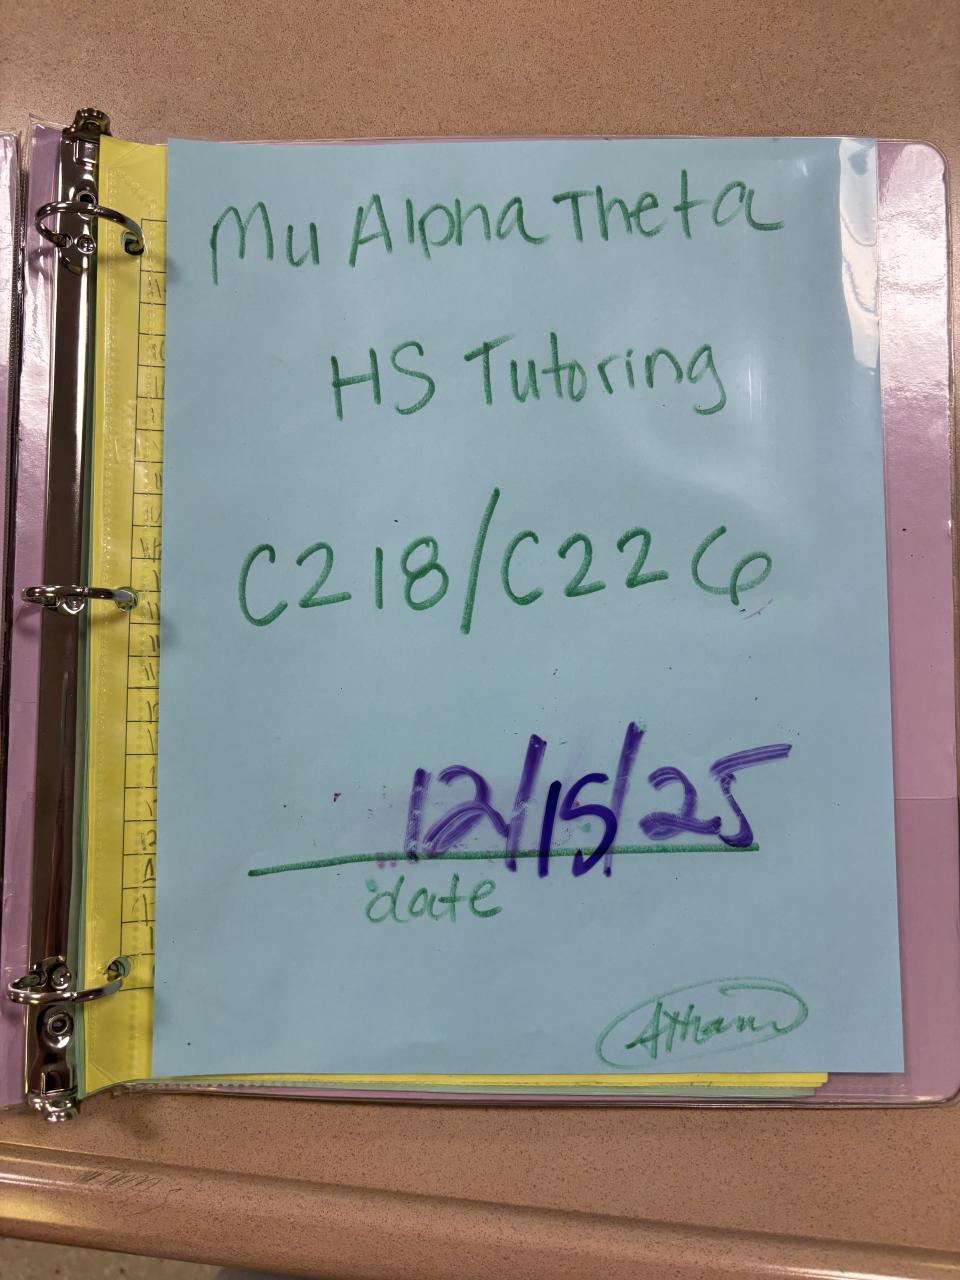 Mu Alpha Theta
HS Tutoring
C218/C226
12/15/25
date